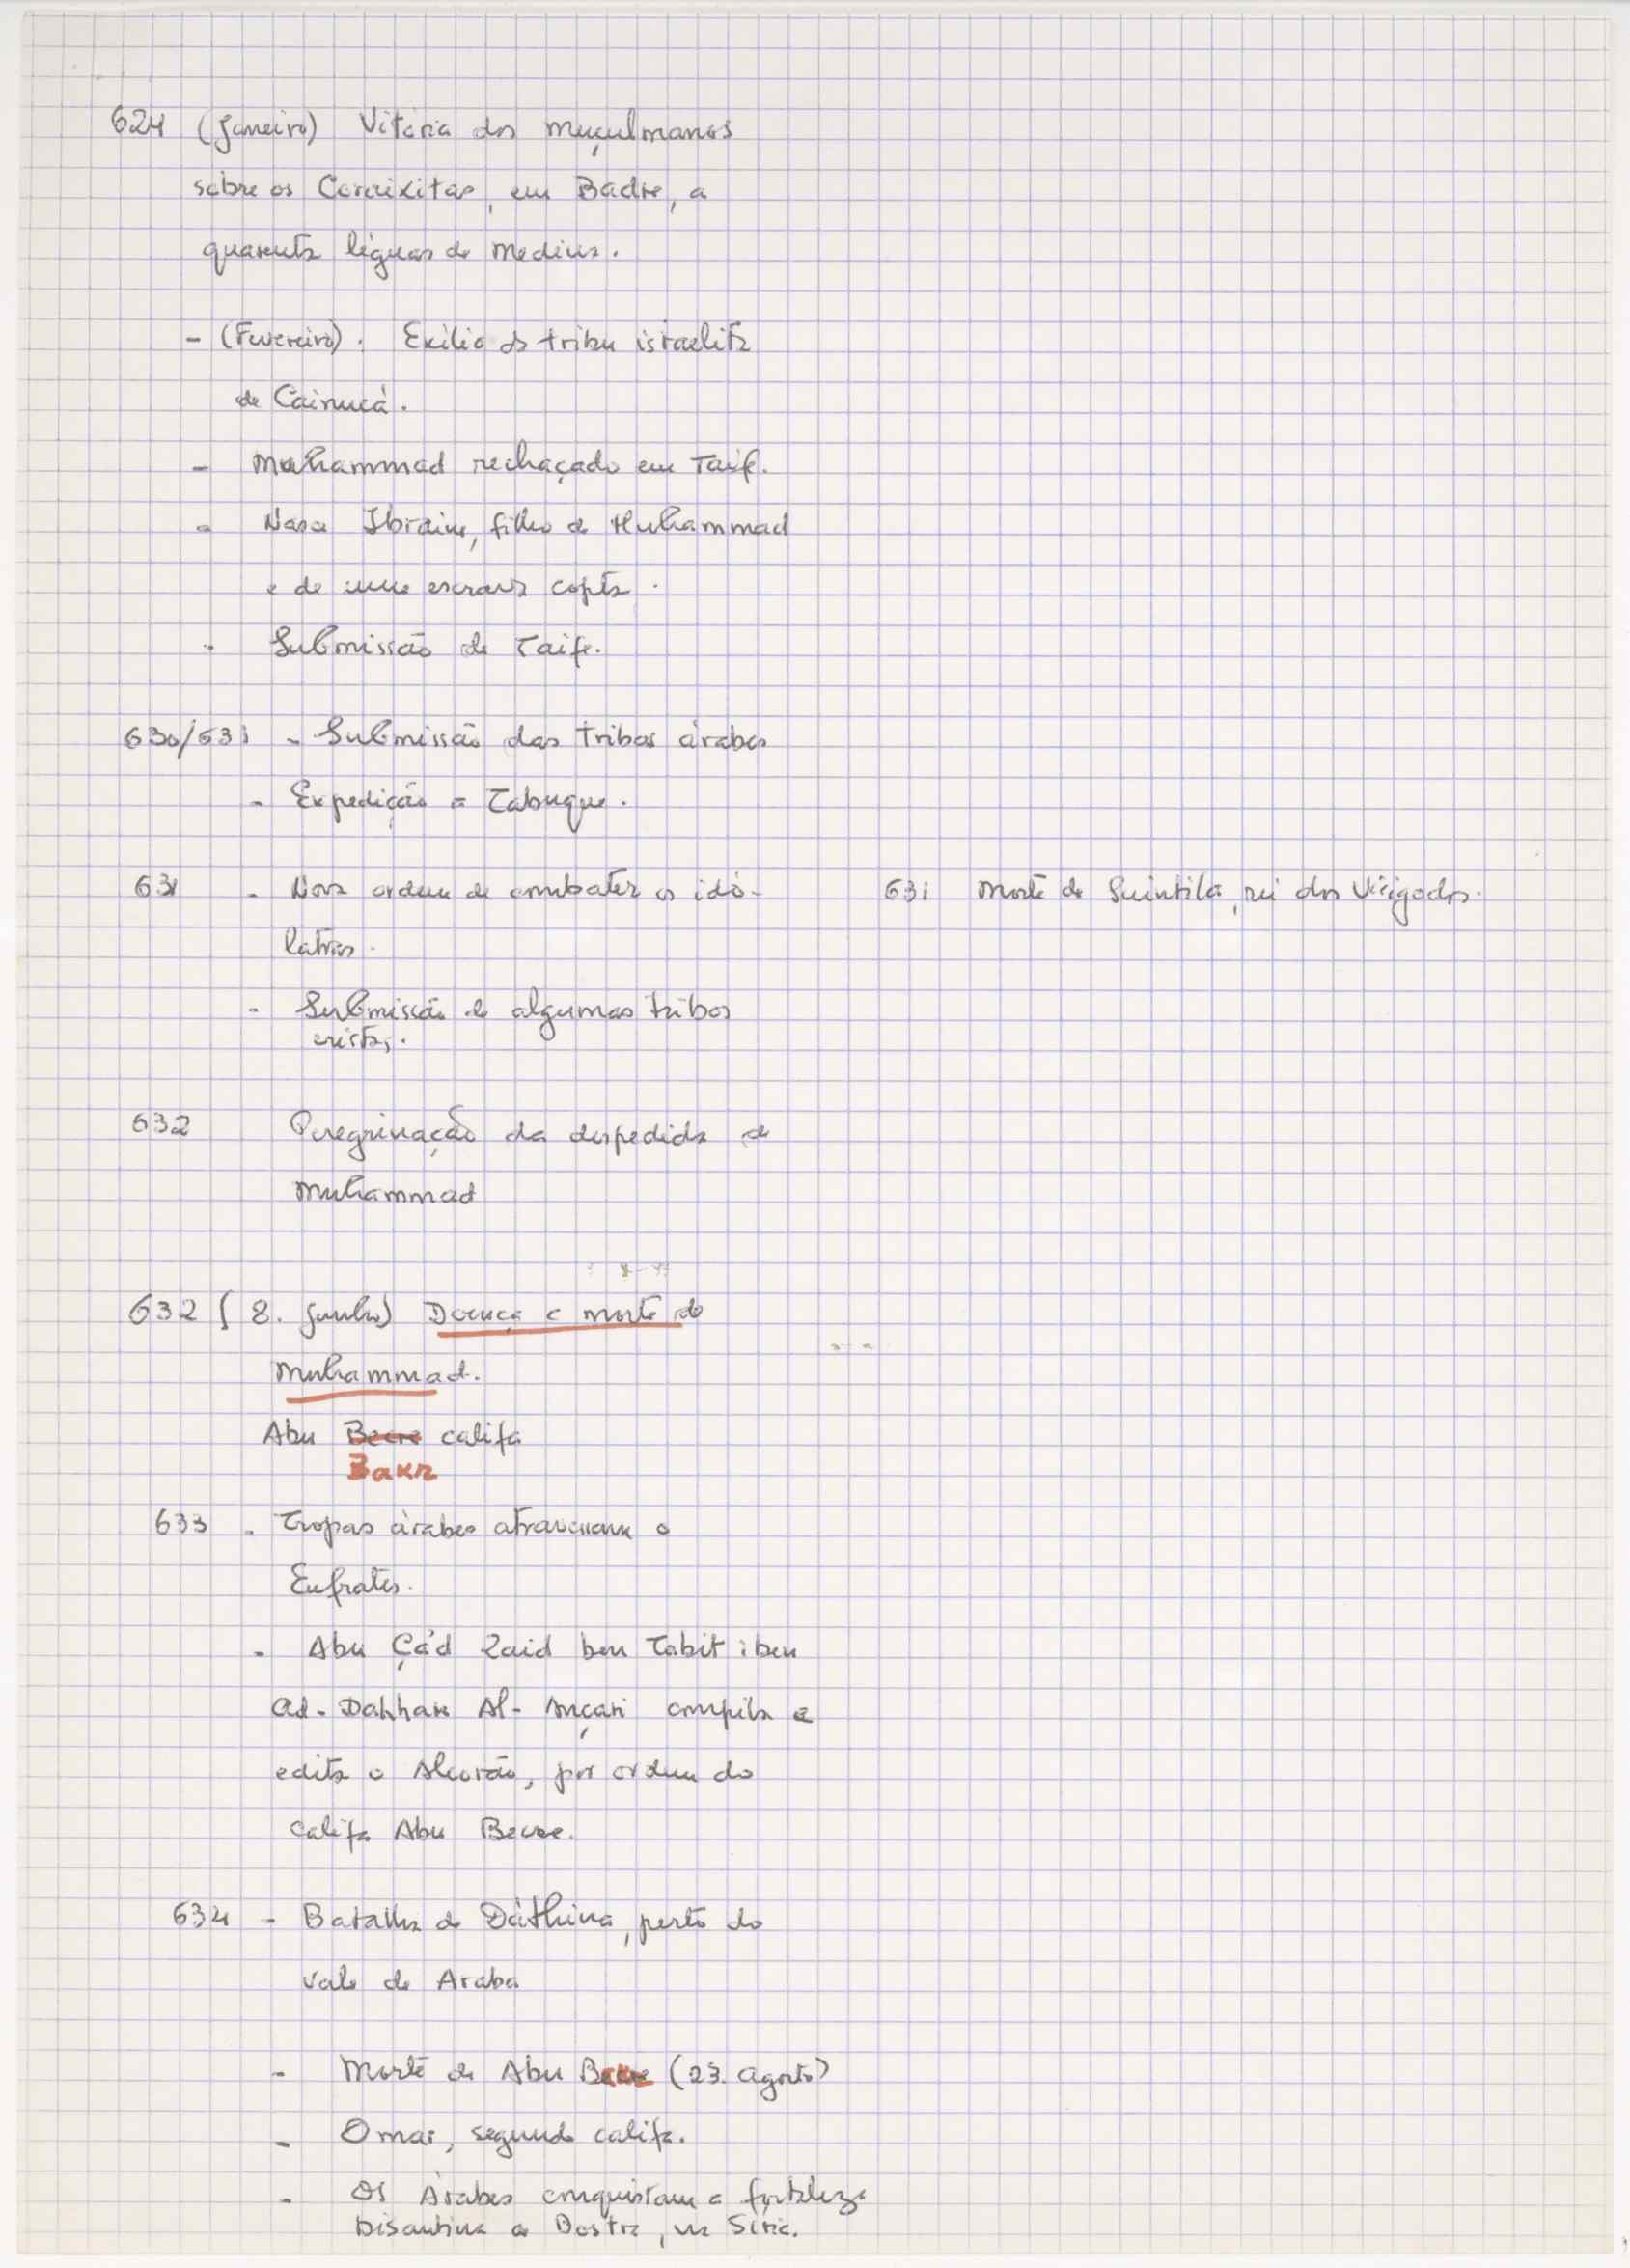 624 (Janeiro) Vitória dos muçulmanos
sobre os Coraixitas, em Badre, a
quarenta léguas de Medina.
- (Fevereiro). Exílio da tribu israelita
de Cainucá.
- Muhammad rechaçado em Taife.
- Nasce Ibraim, filho de Muhammad
e de uma escrava copta.
- Submissão de Taife.
630/631 - Submissão das tribos árabes
- Expedição a Tabuque.
631 - Nova ordem de combater os idó-
latras.
631 Morte de Suintila, rei dos Visigodos.
- Submissão de algumas tribos
cristãs.
632 Peregrinação da despedida de
Muhammad
632 (8. Junho) Doença e morte de
Muhammad.
Abu Becre califa
Bakr
633 - Tropas árabes atravessam o
Eufrates.
- Abu Çá'd Zaid ben Tabit iben
Ad-Dahhak Al-Ançari compila e
edita o Alcorão, por ordem do
califa Abu Becre.
634 - Batalha de Dáthina, perto do
vale de Araba
- Morte de Abu (23. Agosto)
- Omar, segundo califa.
- Os Árabes conquistam a fortaleza
bisantina de Bostra, na Síria.